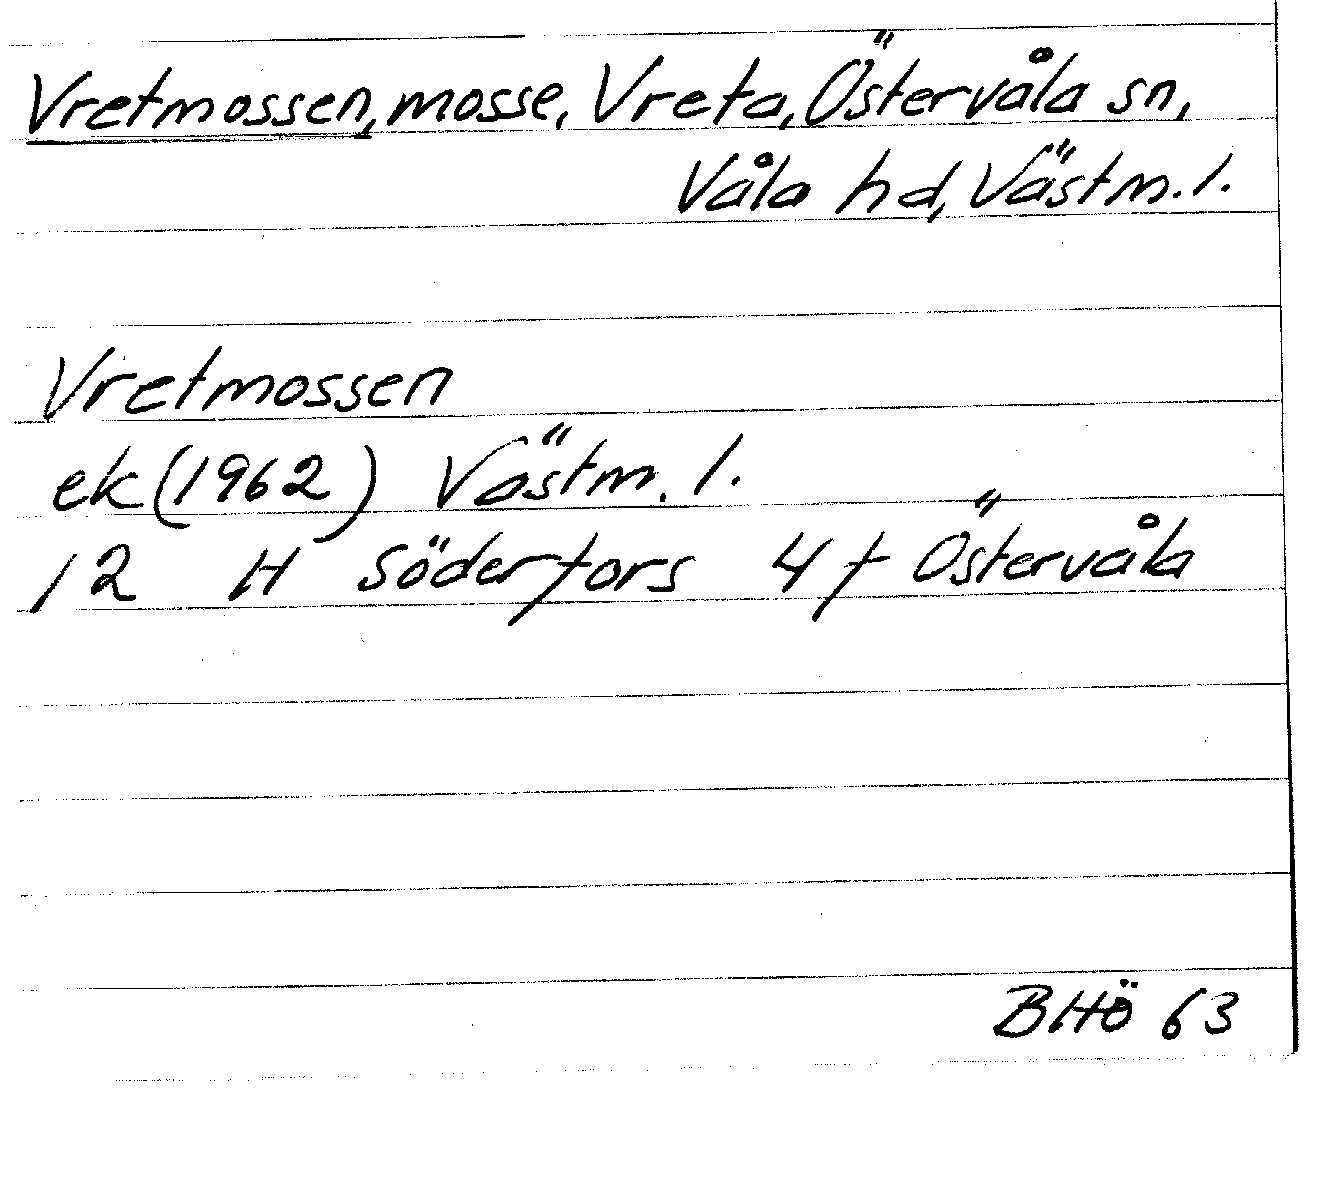 Vretmossen, mosse, Vreta, Östervåla sn,
Våla hd, Västm. l.
Vretmossen
ek (1962) Västm. l.
12 H Söderfors 4 f Östervåla
BHÖ 63